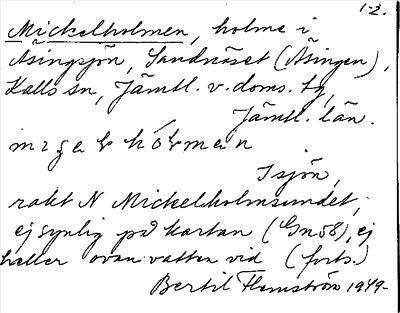 1-2.
Mickelholmen, holme i
Åsingsjön, Sandnäset (Åsingen),
Kalls sn, Jämtl. v. doms. tg,
Jämtl. län.
I sjön,
rakt N Mickelholmsundet;
ej synlig på kartan (Gm58), ej
heller ovan vatten vid (forts.)
Bertil Flemström 1949-